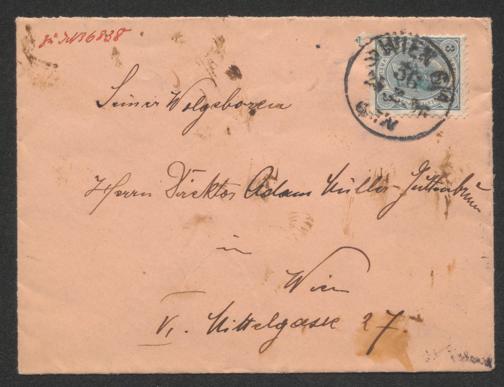 zu IN 36838
WIEN
3
Seiner Wolgeboren
Herrn Direktor Adam Müller-Guttenbrunn
in
Wien
VI. Mittelgasse 27